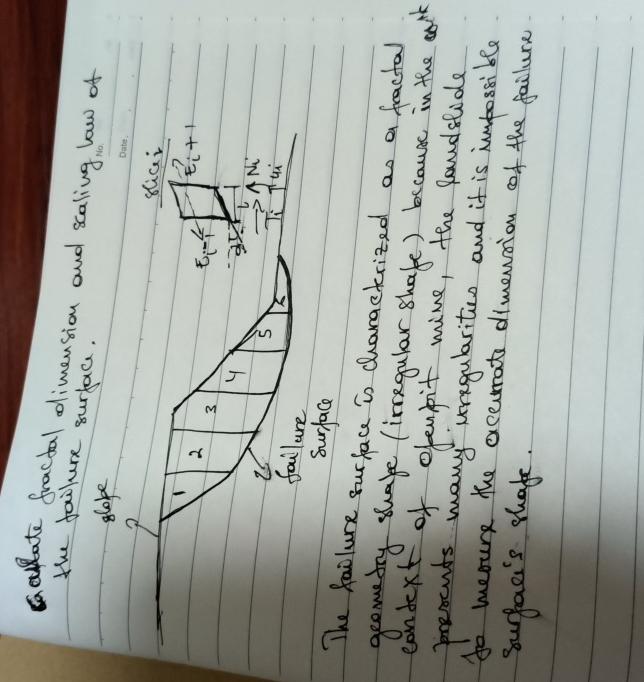 Calculate fractal dimension and scaling law of
the failure surface.
No.
Date.
slope
slice i
Ei-1
Ei+1
Ti
Ni
Ui
1
2
3
4
5
6
failure
surface
The failure surface is characterized as a fractal
geometry shape (irregular shape) because in the
context of openpit mine, the landslide
presents many irregularities and it is impossible
to mesure the accurate dimension of the failure
surface's shape.